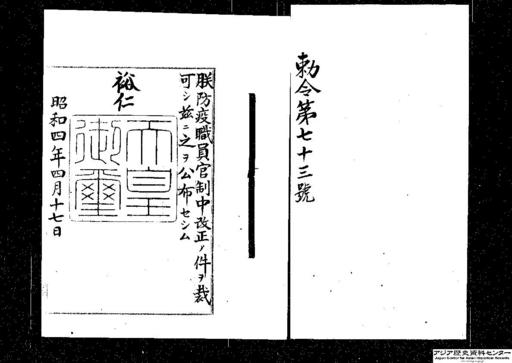 勅令第七十三號
朕防疫職員官制中改正ノ件ヲ裁
可シ玆ニ之ヲ公布セシム
裕仁
天皇御璽
昭和四年四月十七日
アジア歴史資料センター
Japan Center for Asian Historical Records